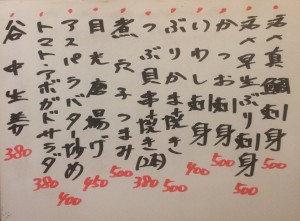 活〆真鯛刺身 500
活〆早生ぶり刺身 500
かつお刺身 500
いわし刺身 400
ぶりかま焼き 500
つぶ貝串焼き(2本) 380
煮穴子つまみ 500
目光唐揚げ 450
アスパラバター炒め 400
トマト・アボガドサラダ 380
谷中生姜 380